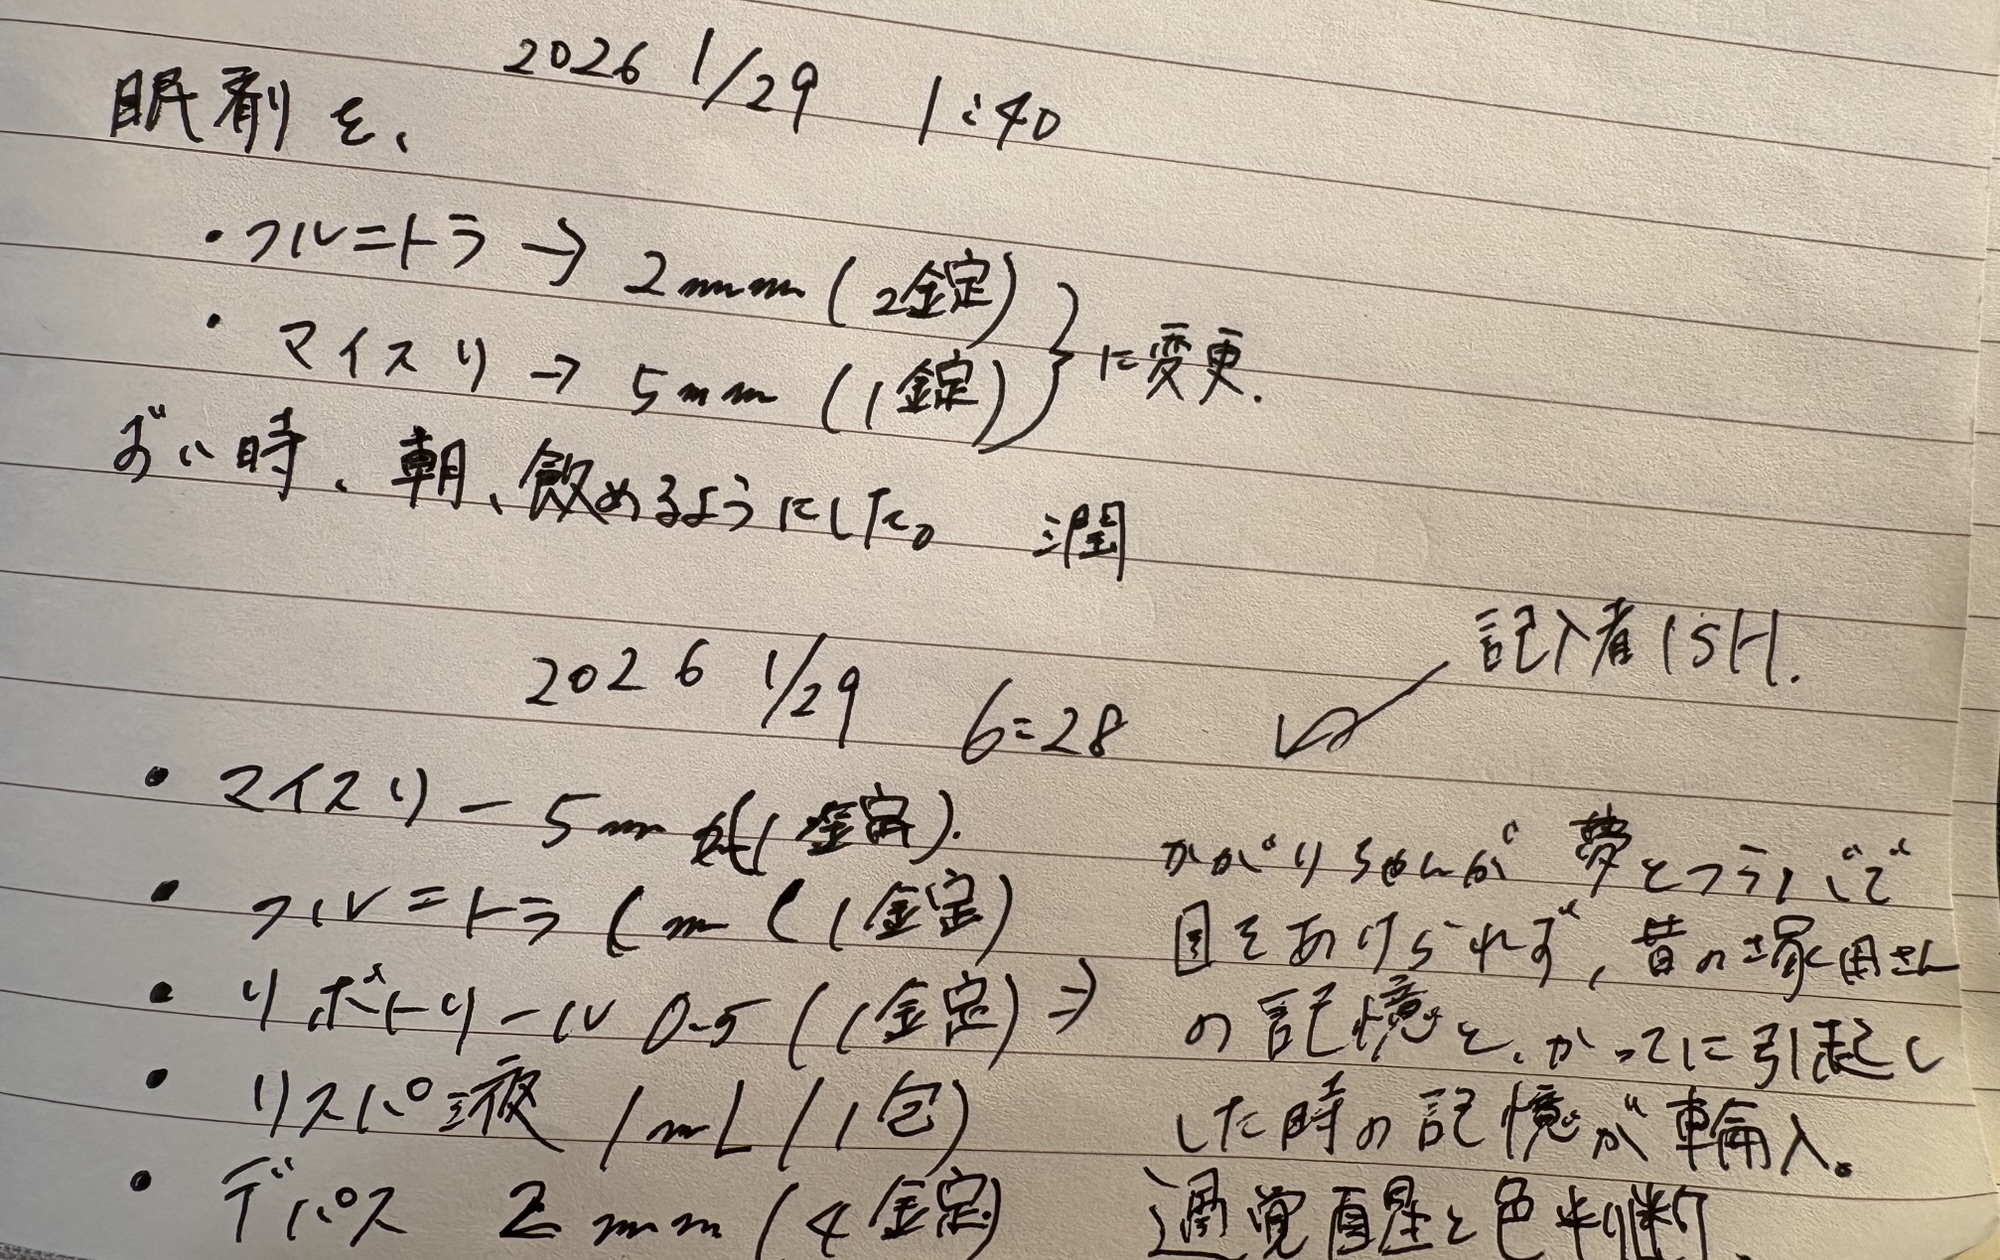 2026 1/29 1:40
眠剤を、
・フルニトラ→2mm(2錠)
・マイスリ→5mm(1錠)
}に変更.
ずい時、朝、飲めるようにした。 潤
記入者ISH.
2026 1/29 6:28
・マイスリー5m (1錠).
・フルニトラ1m(1錠)
・リボトリール0.5(1錠)⇒
・リスパ液 1mL(1包)
・デパス 2mm(4錠)
かがりちゃんが夢とフラバで
目をあけられず、昔の塚田さん
の記憶を、かってに引起し
した時の記憶が輸入。
過覚醒と色判断